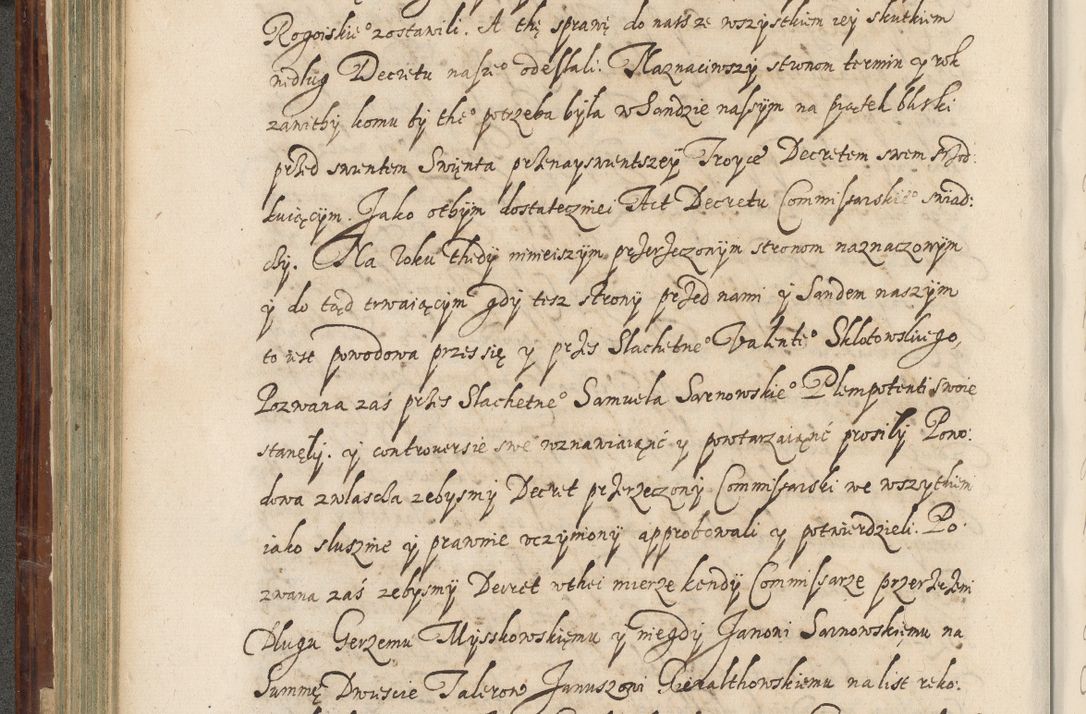 Rogoiskie° zostawili. A thę sprawę do nas ze wszystkiem iey skutkiem
według Decretu nasze° odesłali. Naznaciwszy stronom termin y rok
zawithy komu by the° potrzeba była w Sandzie naszym na piątek bliski
przed swientem Swięnta przenayswentszey Troyce Decretem swem przod:
kuięcym. Jako othym dostateczniei Act Decretu Commissarskie° swiad:
cży. Na Roku thedy ninieiszym przerzeczonym stronom naznaczonym
y do tąd trwaiącym gdy tesz strony przed nami y Sandem naszym
to iest powodowa przes się y przes Slachetne° Valente° Sklotowskiego,
Pozwana zaś przes Slachetne° Samuela Sarnowskie° Plempotenti swoie
stanęly. y controversie swe wznawiaiąnć y powtarzaiąnć prosiły Powo:
dowa zwlascża zebysmy Decret przerzeczony Commissarski we wszytkim
iako slusznie y prawnie uczyniony approbowali y potwierdzieli. Po:
zwana zaś zebysmy Decret wthei mierze kendy Commissarze przerzezeni
Długu Gerzemu Mysskowskięmu y niegdy Janoni Sarnowskięmu na
Summę Dwiescie Talerow Januszoni Gieralthowskiemu na list reko: